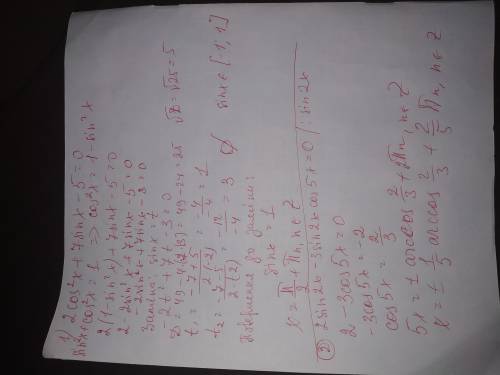 1) 2cos²x + 7sinx - 5 = 0
sin²x + cos²x = 1 ⇒ cos²x = 1 - sin²x
2(1 - sin²x) + 7sinx - 5 = 0
2 - 2sin²x + 7sinx - 5 = 0
-2sin²x + 7sinx - 3 = 0
Замена: sinx = t
-2t² + 7t - 3 = 0
D = 49 - 4(2·3) = 49 - 24 = 25 √D = √25 = 5
t₁ = (-7+5)/(2·(-2)) = -4/-4 = 1
t₂ = (-7-5)/(2·(-2)) = -12/-4 = 3 ∅ sinx ∈ [-1; 1]
до замены:
sinx = 1
x = π/2 + πn, n ∈ Z
② 2sin2x - 3sin2x cos5x = 0 | : sin2x
2 - 3cos5x = 0
-3cos5x = -2
cos5x = 2/3
5x = ± arccos 2/3 + 2πn, n ∈ Z
x = ± 1/5 arccos 2/3 + 2/5 πn, n ∈ Z